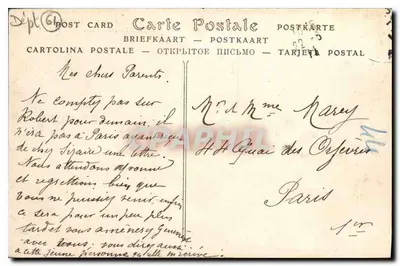 Dépt 64
POST CARD Carte Postale POSTKARTE
BRIEFKAART — POSTKAART
CARTOLINA POSTALE — ОТКРЫТОЕ ПИСЬМО — TARJETA POSTAL
Mes chers Parents.
Ne comptez pas sur
Robert pour demain; il
n'ira pas à Paris ayant
de chez une lettre.
Nous attendons Yvonne
et regrettons bien que
vous ne puissiez venir, enfin
ce sera pour un peu plus
tard et vous amènerez
avec vous; vous direz aussi
à cette jeune personne
Mr et Mme Marey
44 Quai des Orfèvres
Paris
1er